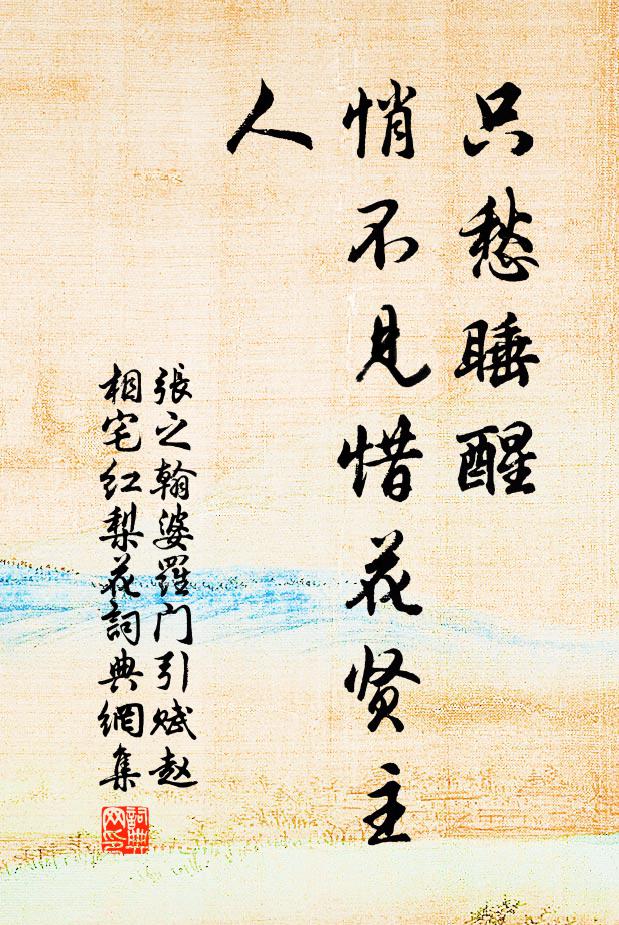 只愁睡醒
悄不見惜花贤主
人
張之翰婆羅门引赋赵
相宅红梨花詞典網集